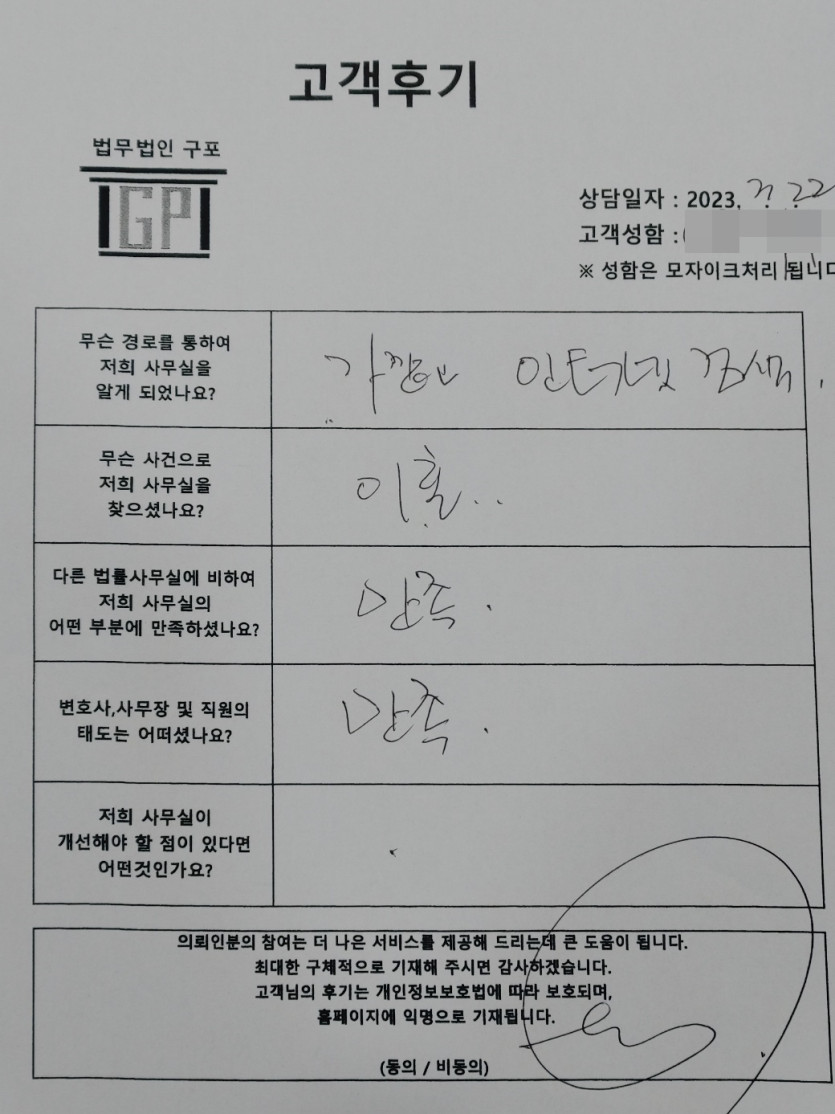 고객후기
법무법인 구포
GP
상담일자 : 2023. 7. 22
고객성함 :
※ 성함은 모자이크처리 됩니다
무슨 경로를 통하여
저희 사무실을
알게 되었나요?
인터넷 검색.
무슨 사건으로
저희 사무실을
찾으셨나요?
이혼..
다른 법률사무실에 비하여
저희 사무실의
어떤 부분에 만족하셨나요?
만족.
변호사,사무장 및 직원의
태도는 어떠셨나요?
만족.
저희 사무실이
개선해야 할 점이 있다면
어떤것인가요?
의뢰인분의 참여는 더 나은 서비스를 제공해 드리는데 큰 도움이 됩니다.
최대한 구체적으로 기재해 주시면 감사하겠습니다.
고객님의 후기는 개인정보보호법에 따라 보호되며,
홈페이지에 익명으로 기재됩니다.
(동의 / 비동의)